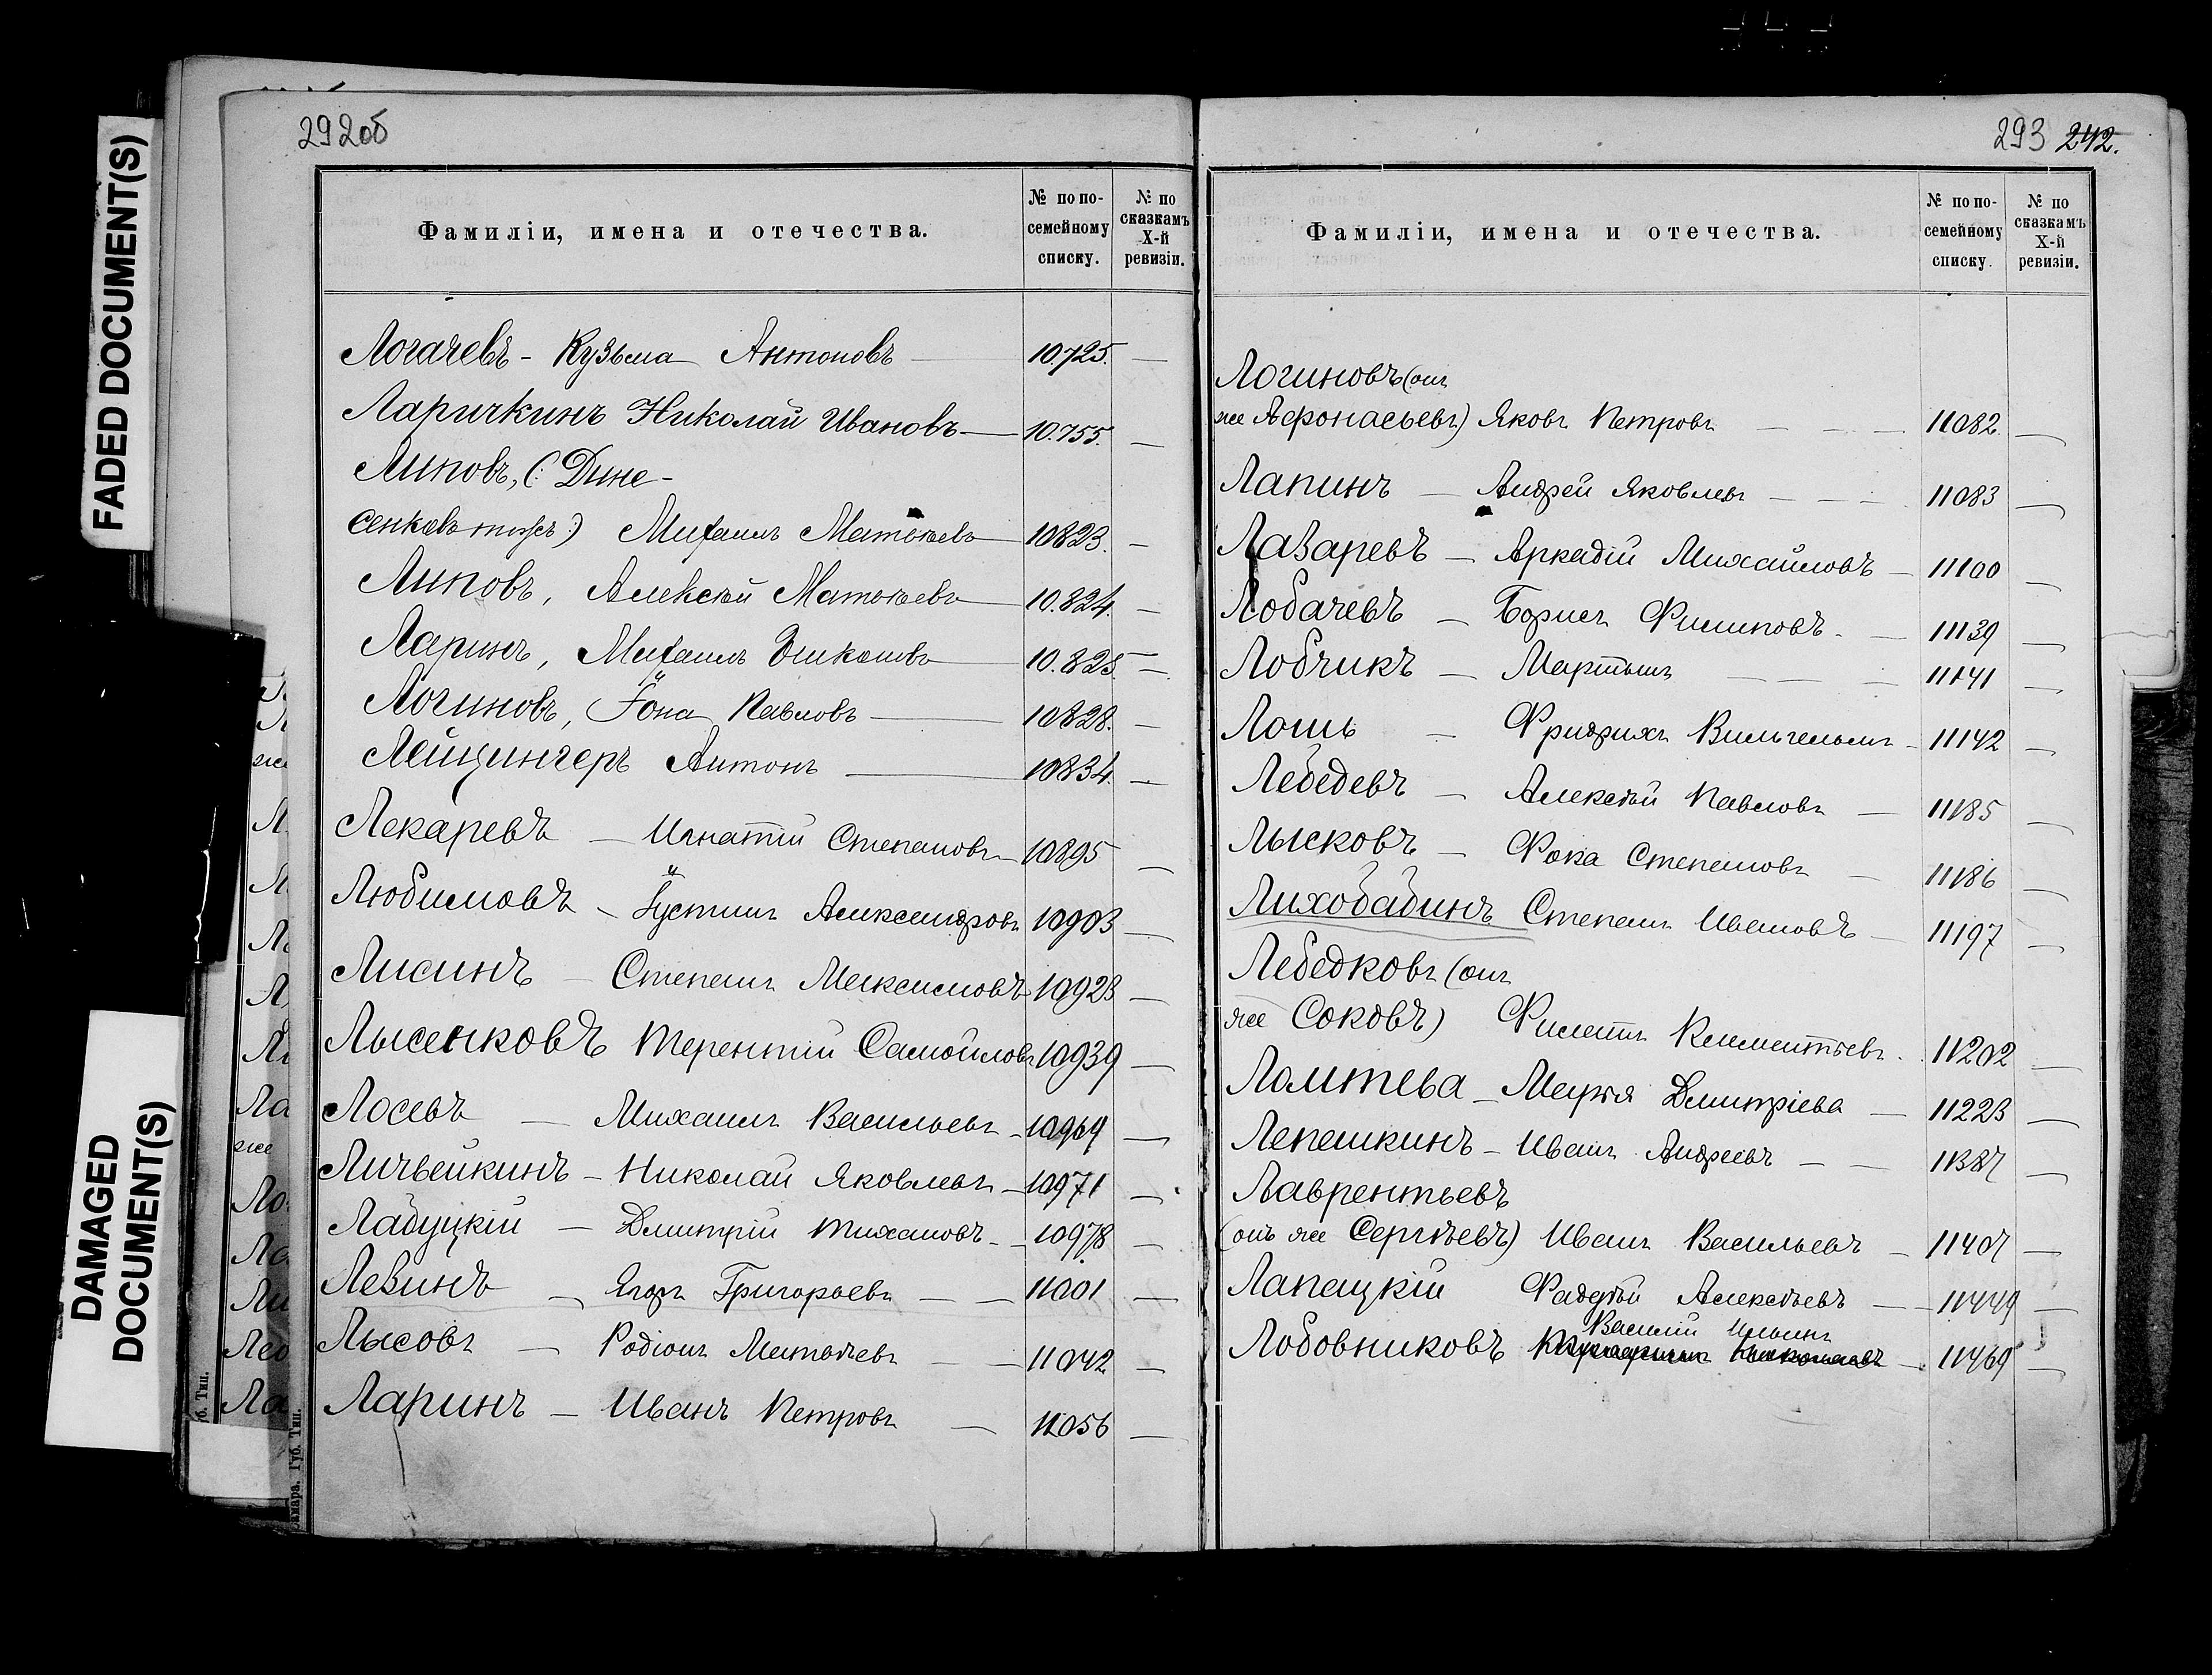 FADED DOCUMENT(S)
DAMAGED
DOCUMENT(S)
292об
Фамиліи, имена и отечества.
№ по по-
семейному
списку.
№ по
сказкамъ
X-й
ревизіи.
Логачевъ - Кузьма Антоновъ 10.725. —
Ларичкинъ Николай Ивановъ — 10.755. —
Липовъ, (: Дене-
сенковъ тожъ :) Михаилъ Матвѣевъ — 10823. —
Липовъ, Алексѣй Матвѣевъ — 10.824. —
Ларинъ, Михаилъ — 10.825. —
Логиновъ, Іона Павловъ — 10828. —
Лейцингеръ Антонъ — 10834. —
Лекаревъ — Игнатій Степановъ — 10895 —
Любимовъ — Іустинъ Александровъ 10903 —
Лисинъ — Степанъ Максимовъ 10923 —
Лысенковъ Терентій Самойловъ 10939 —
Лосевъ — Михаилъ Васильевъ — 10969 —
Личвейкинъ — Николай Яковлевъ — 10971 —
Ладуцкій — Дмитрій — 10978 —
Левинъ — Егоръ Григорьевъ — — 11001 —
Лысовъ — Родіонъ Матвѣевъ — 11042 —
Ларинъ — Иванъ Петровъ — 11056 —
Губ. Тип.
293 242.
Фамиліи, имена и отечества.
№ по по-
семейному
списку.
№ по
сказкамъ
X-й
ревизіи.
Логиновъ (онъ
же Афонасьевъ) Яковъ Петровъ — — — 11082 —
Лапинъ — Андрей Яковлевъ — — — 11083 —
Лазаревъ — Аркадій Михайловъ — 11100 —
Лобачевъ — Борисъ Филиповъ — 11139 —
Лобчикъ — Мартынъ — — — 11141 —
Лошь — Фридрихъ Вильгельмъ — 11142 —
Лебедевъ — Алексѣй Павловъ — 11185 —
Лысковъ — Фока Степановъ — 11186 —
Лиходадинъ Степанъ Ивановъ — 11197 —
Лебедковъ (онъ
же Соковъ) Филатъ Климентьевъ — 11202 —
Ломтева — Марѳа Дмитріева — 11223 —
Лепешкинъ — Иванъ Андреевъ — — 11387 —
Лаврентьевъ
(онъ же Сергѣевъ) Иванъ Васильевъ — 11407 —
Лапацкій Фадѣй Алексѣевъ — 11449 —
Василій Ильинъ
Лобовниковъ — 11469 —